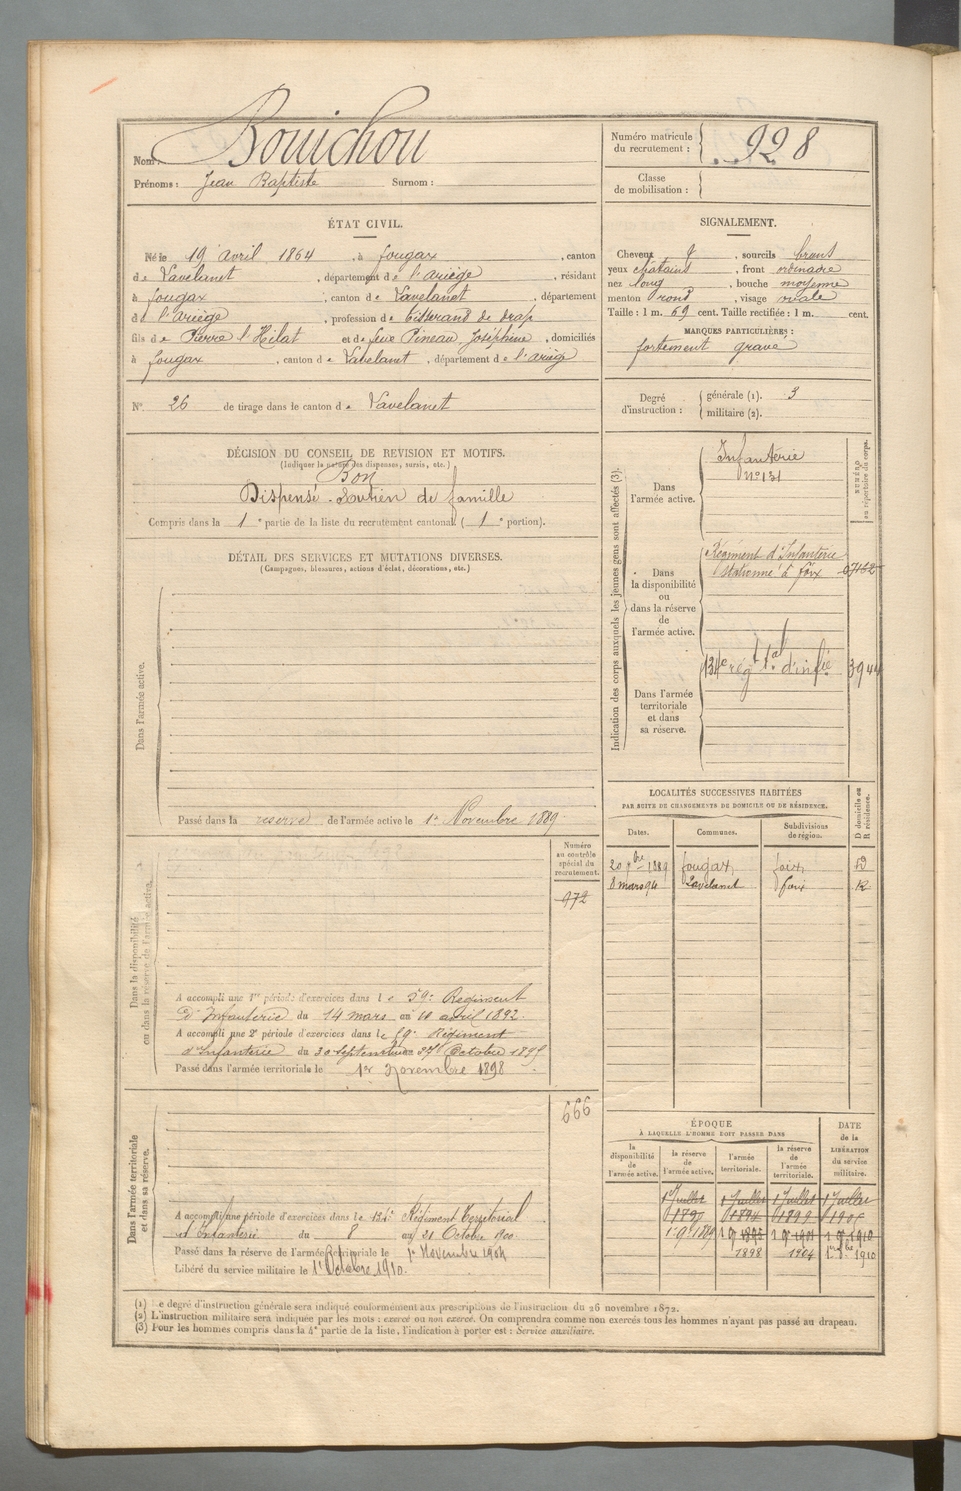 Nom : Bouichou
Prénoms : Jean Baptiste Surnom :
Numéro matricule
du recrutement : 928
Classe
de mobilisation :
ÉTAT CIVIL.
Né le 19 avril 1864, à fougax, canton
de Lavelanet, département de l'ariège, résidant
à fougax, canton de Lavelanet, département
de l'ariège, profession de tisserand de drap
fils de Pierre l'Hilat et de feue Pineau Joséphine, domiciliés
à fougax, canton de Lavelanet, département de l'ariège
N° 26 de tirage dans le canton de Lavelanet
SIGNALEMENT.
Cheveux q, sourcils bruns
yeux chatains, front ordinaire
nez long, bouche moyenne
menton rond, visage ovale
Taille : 1 m. 69 cent. Taille rectifiée : 1 m. cent.
MARQUES PARTICULIÈRES :
fortement gravé
Degré
d'instruction :
générale (1). 3
militaire (2).
DÉCISION DU CONSEIL DE REVISION ET MOTIFS.
(Indiquer la nature des dispenses, sursis, etc.)
Bon
Dispensé. Soutien de famille
Compris dans la 1e partie de la liste du recrutement cantonal (1e portion).
DÉTAIL DES SERVICES ET MUTATIONS DIVERSES.
(Campagnes, blessures, actions d'éclat, décorations, etc.)
Dans l'armée active.
Passé dans la reserve de l'armée active le 1er Novembre 1889
Indication des corps auxquels les jeunes gens sont affectés (3).
NUMÉRO
au répertoire du corps.
Dans
l'armée active.
Infanterie
n° 131
Dans
la disponibilité
ou
dans la réserve
de
l'armée active.
Régiment d'Infanterie
stationné à foix
Dans l'armée
territoriale
et dans
sa réserve.
134e régt tal d'infie 3944
LOCALITÉS SUCCESSIVES HABITÉES
PAR SUITE DE CHANGEMENTS DE DOMICILE OU DE RÉSIDENCE.
Dates. Communes. Subdivisions
de région.
D domicile ou
R résidence.
20 7bre 1889 fougax foix D
8 mars 94 Lavelanet foix R
Dans la disponibilité
ou dans la réserve de l'armée active.
Numéro
au contrôle
spécial du
recrutement.
972
A accompli une 1re période d'exercices dans le 59e Régiment
d'Infanterie du 14 mars au 10 avril 1892.
A accompli une 2e période d'exercices dans le 59e Régiment
d'Infanterie du 30 septembre au 27 Octobre 1895
Passé dans l'armée territoriale le 1er Novembre 1898
Dans l'armée territoriale
et dans sa réserve.
666
A accompli une période d'exercices dans le 134e Régiment Territorial
d'Infanterie du 8 au 21 Octobre 1900
Passé dans la réserve de l'armée territoriale le 1er Novembre 1904
Libéré du service militaire le 1er Octobre 1910.
ÉPOQUE
À LAQUELLE L'HOMME DOIT PASSER DANS
la
disponibilité
de
l'armée active.
la réserve
de
l'armée active.
l'armée
territoriale.
la réserve
de
l'armée
territoriale.
DATE
de la
LIBÉRATION
du service
militaire.
1 Juillet 1 Juillet 1 Juillet 1 Juillet
1890 1894 1899 1905
1898 1904 1er 8bre 1910
(1) Le degré d'instruction générale sera indiqué conformément aux prescriptions de l'instruction du 26 novembre 1872.
(2) L'instruction militaire sera indiquée par les mots : exercé ou non exercé. On comprendra comme non exercés tous les hommes n'ayant pas passé au drapeau.
(3) Pour les hommes compris dans la 4e partie de la liste, l'indication à porter est : Service auxiliaire.